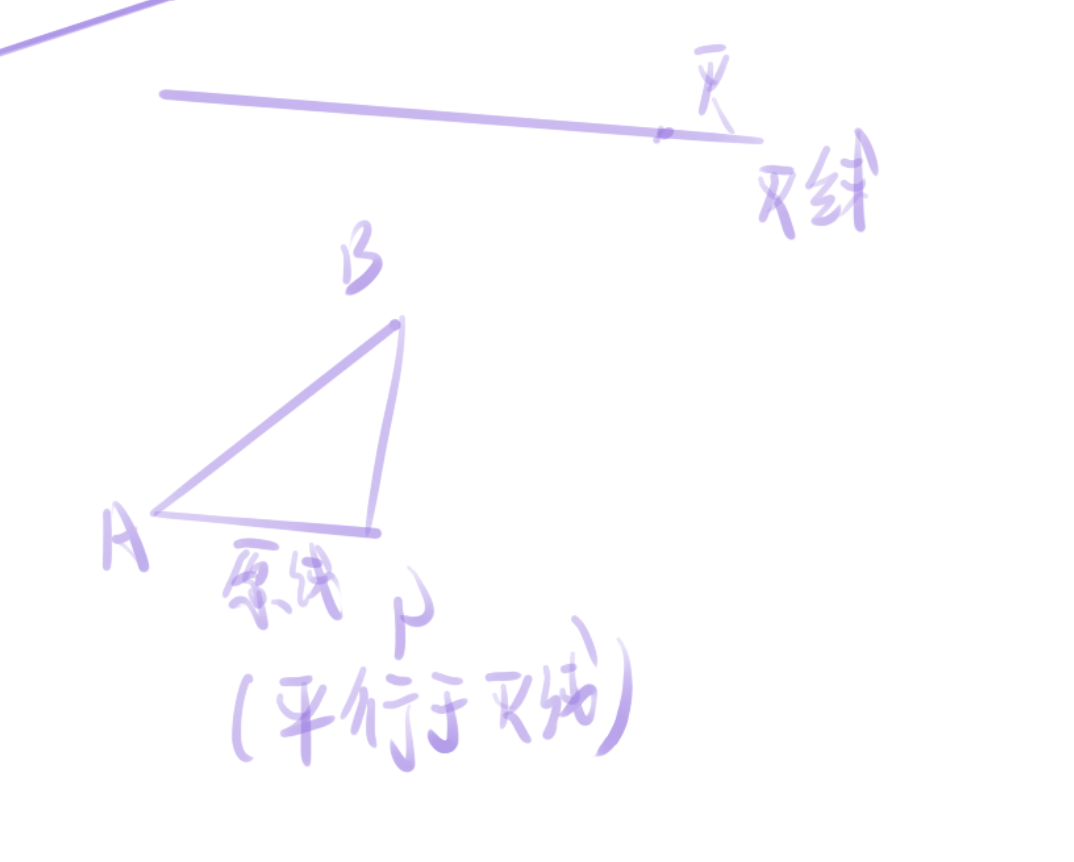 灭
灭线
B
A
原线
P
(平行于灭线)